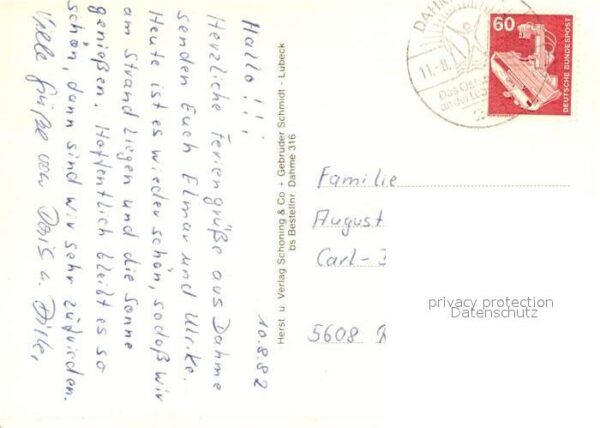 10.8.82
Hallo!!!
Herzliche Feriengrüße aus Dahme
senden Euch Elmar und Ulrike.
Heute ist es wieder schön, sodaß wir
am Strand liegen und die Sonne
genießen. Hoffentlich bleibt es so
schön, dann sind wir sehr zufrieden.
Viele Grüße von Doris u.
Herst. u. Verlag Schöning & Co + Gebrüder Schmidt - Lübeck
bs Bestellnr. Dahme 316
DAHM
11.-8.
Das Ost
60
DEUTSCHE BUNDESPOST
Familie
August
Carl-
5608
privacy protection
Datenschutz